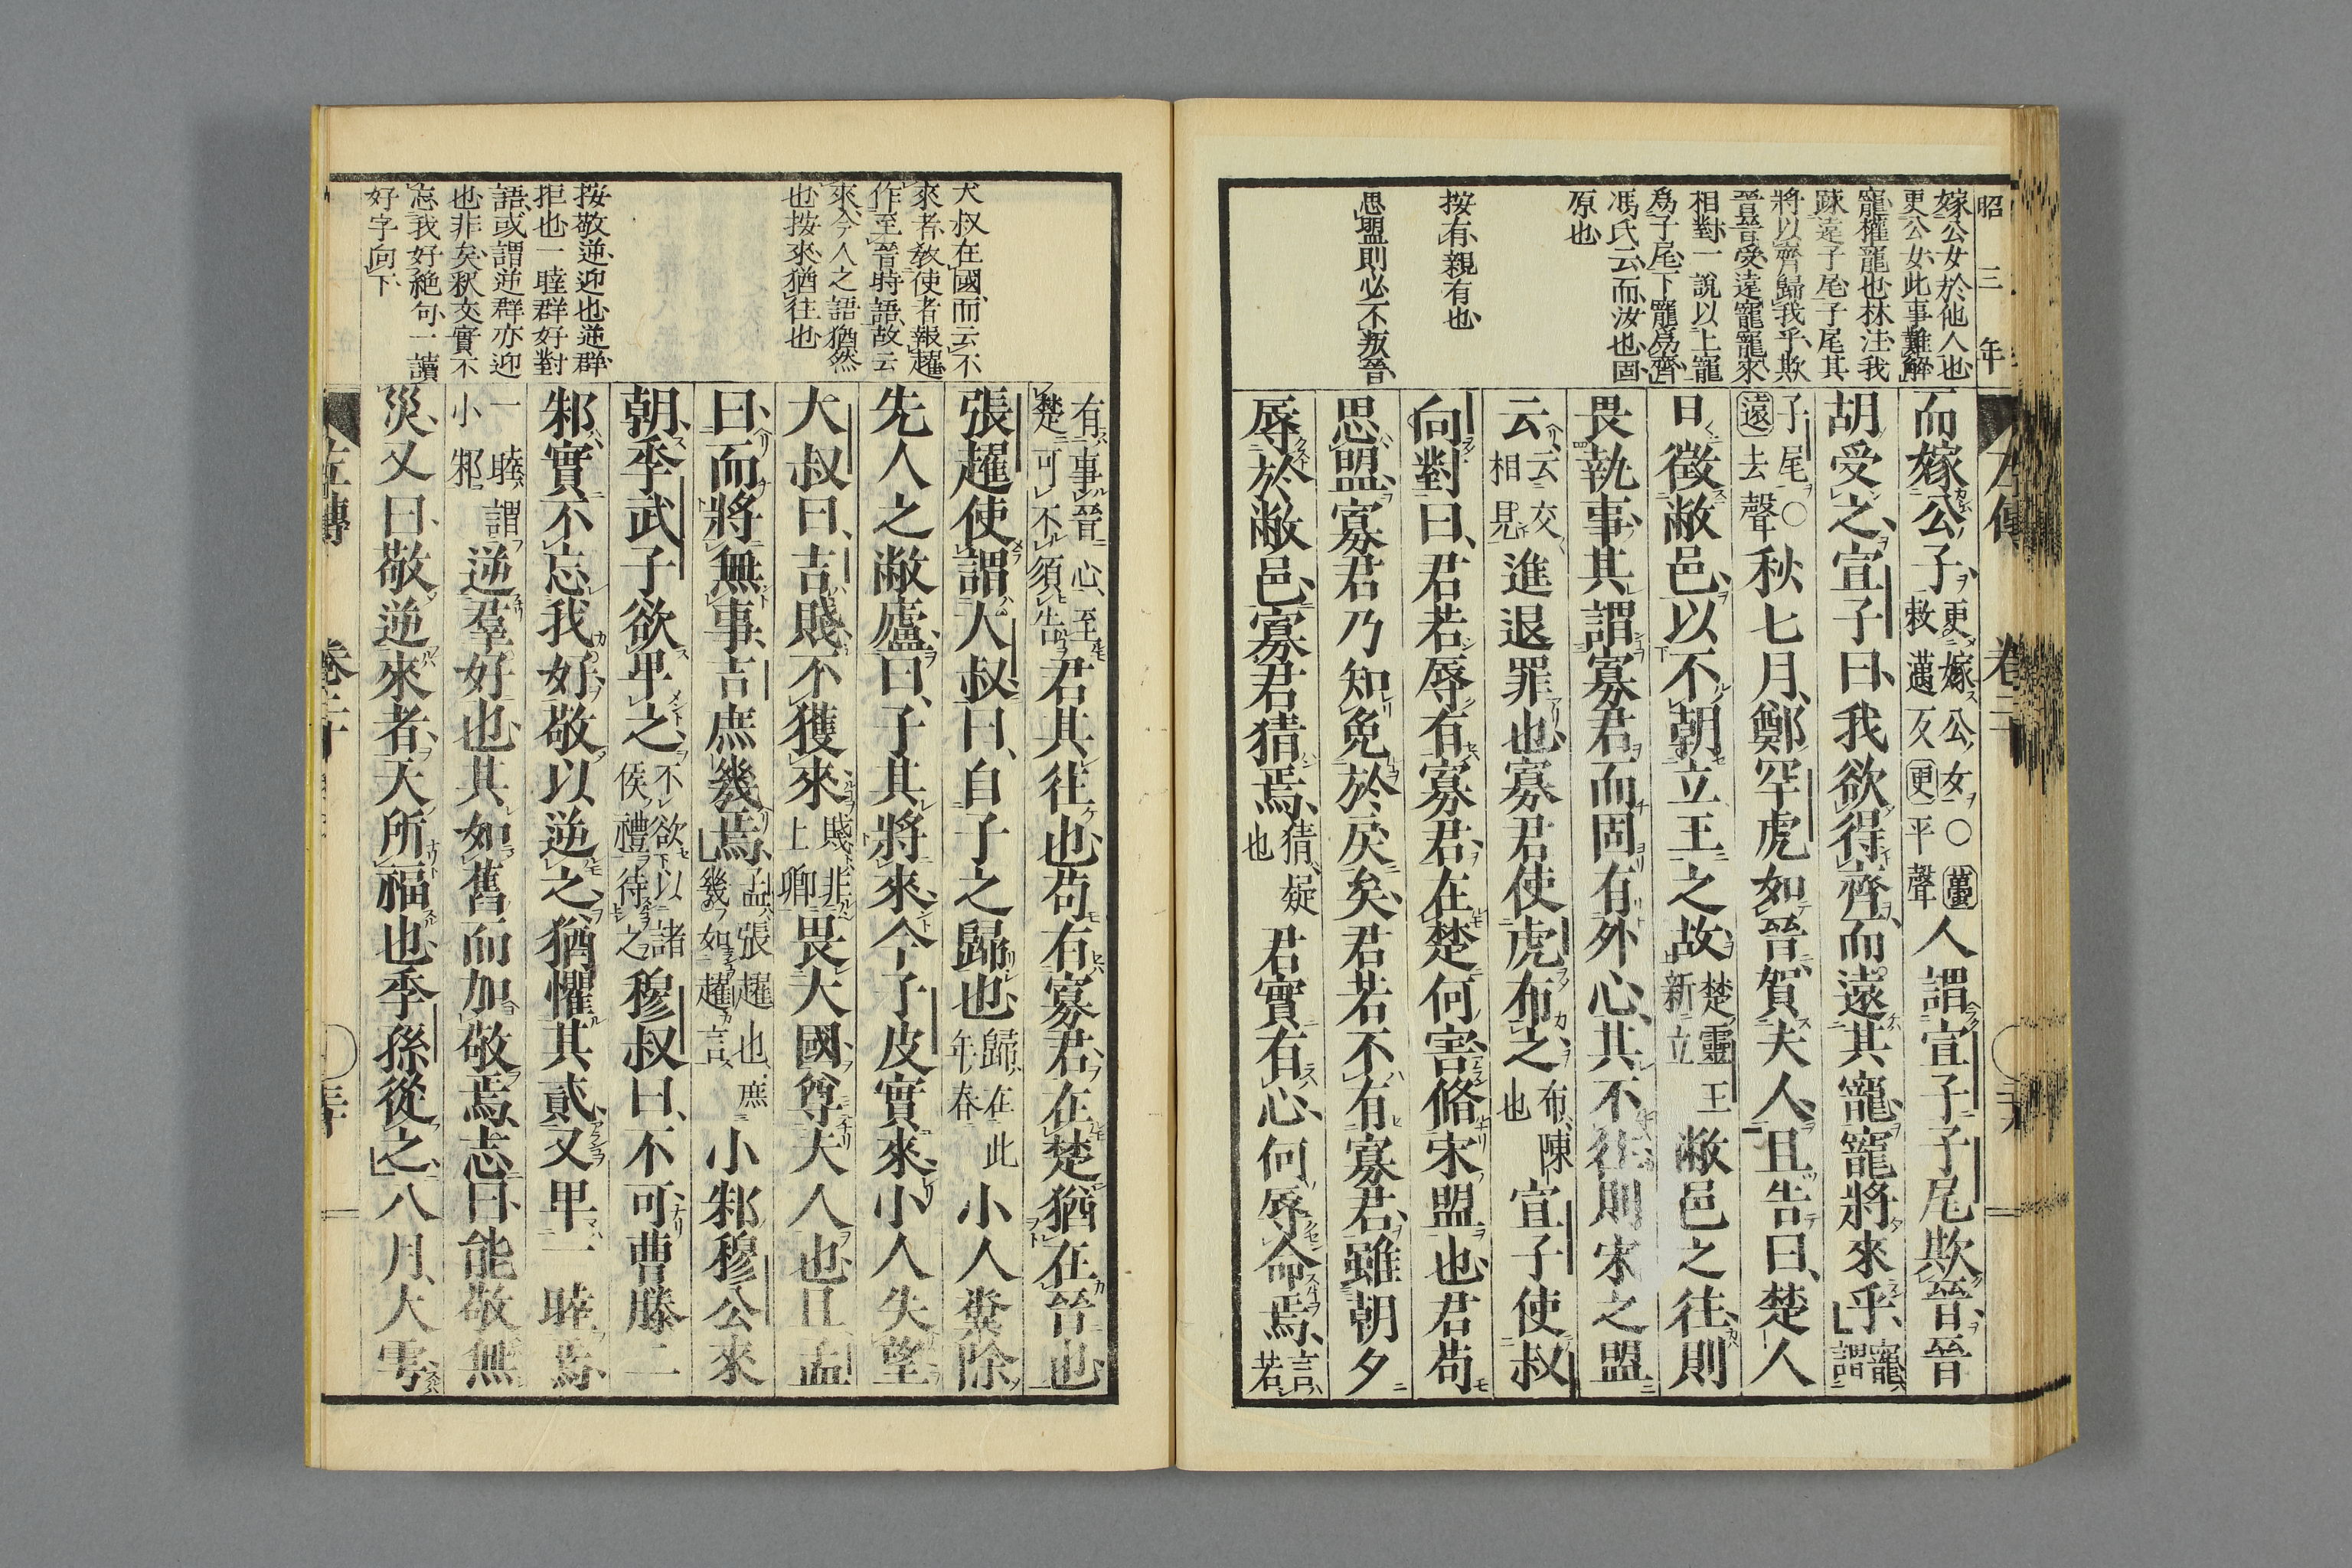 昭三年
嫁公女於他人也
更公女此事難解
寵權寵也林注我
踈遠子尾子尾其
將以齊歸我乎欺
晉晉受遠寵寵來
相對一說以上寵
爲子尾下寵爲齊
馮氏云而汝也固
原也
按有親有也
思盟則必不叛晉
左傳 卷二十
而嫁公子更嫁公女○蠆敕邁反更平聲人謂宣子子尾欺晉晉
胡受之宣子曰我欲得齊而遠其寵寵將來乎寵謂
子尾○遠去聲秋七月鄭罕虎如晉賀夫人且告曰楚人
日徵敝邑以不朝立王之故楚靈王新立敝邑之往則
畏執事其謂寡君而固有外心其不往則宋之盟
云云交相見進退罪也寡君使虎布之布陳也宣子使叔
向對曰君若辱有寡君在楚何害脩宋盟也君苟
思盟寡君乃知免於戾矣君若不有寡君雖朝夕
辱於敝邑寡君猜焉猜疑也君實有心何辱命焉言若
大叔在國而云不
來者教使者報趯
作至晉時語故云
來今人之語猶然
也按來猶往也
按敬逆迎也逆群
拒也一睦群好對
語或謂逆群亦迎
也非矣釈文實不
忘我好絶句一讀
好字向下
有事晉心至楚可不須告君其往也苟有寡君在楚猶在晉也
張趯使謂大叔曰自子之歸也歸在此年春小人糞除
先人之敝廬曰子其將來今子皮實來小人失望
大叔曰吉賤不獲來賤非上卿畏大國尊夫人也且孟
曰而將無事吉庶幾焉孟張趯也庶幾如趯言小邾穆公來
朝季武子欲卑之不欲以諸侯禮待之穆叔曰不可曹滕二
邾實不忘我好敬以逆之猶懼其貳又卑一睦焉
一睦謂小邾逆羣好也其如舊而加敬焉志曰能敬無
災又曰敬逆來者天所福也季孫從之八月大雩
左傳 卷二十